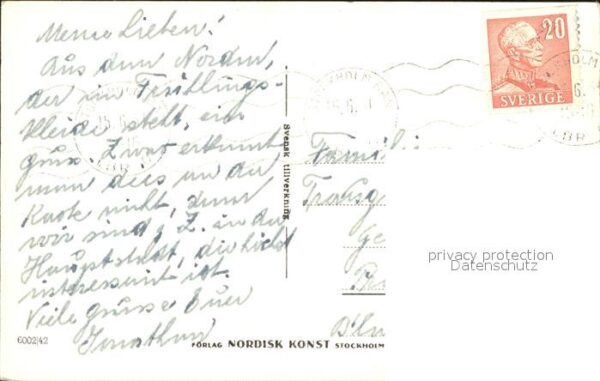 Meine Lieben!
Aus dem Norden,
der im Frühlings-
kleide steht, ein
gruss. Zwar erkennt
man dies an der
Karte nicht, denn
wir sind z. Z. in der
Hauptstadt, die höchst
interessant ist.
Viele grüsse Euer
Jonathan
6002/42
FÖRLAG NORDISK KONST STOCKHOLM
Svensk tillverkning
20
SVERIGE
Famili
privacy protection
Datenschutz